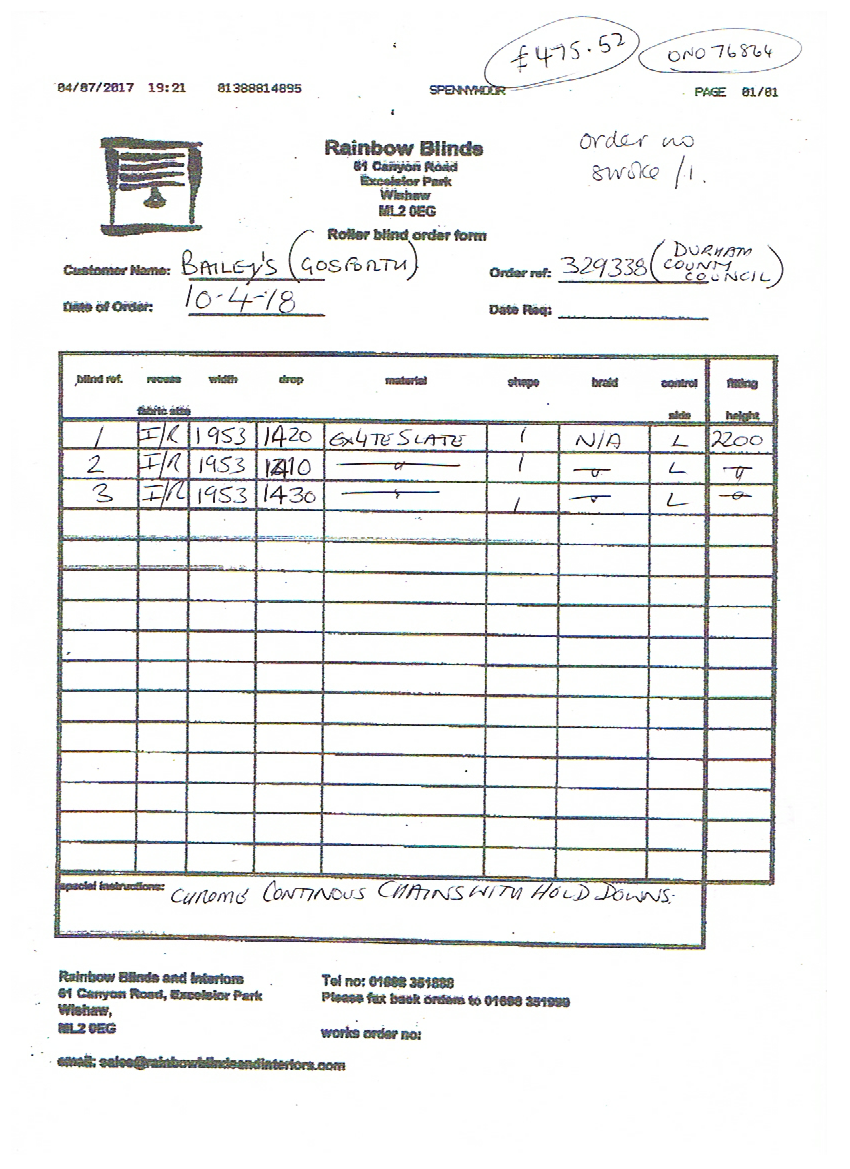 £475.52
ONO 76864
04/07/2017 19:21 01388814895 SPENNYMOOR PAGE 01/01
Rainbow Blinds
61 Canyon Road
Excelsior Park
Wishaw
ML2 0EG
order no
stroke /1.
Roller blind order form
Customer Name: BAILEY'S (GOSFORTH) Order ref: 329338 (DURHAM COUNTY COUNCIL)
Date of Order: 10-4-18 Date Req:
blind ref. recess width drop material shape braid control fitting
fabric size side height
1 I/R 1953 1420 SLATE 1 N/A L 2200
2 I/R 1953 1410 " 1 " L "
3 I/R 1953 1430 " 1 " L "
special instructions: CHROME CONTINOUS CHAINS WITH HOLD DOWNS.
Rainbow Blinds and Interiors Tel no: 01698 351888
61 Canyon Road, Excelsior Park Please fax back orders to 01698 351999
Wishaw,
ML2 0EG works order no:
email: sales@rainbowblindsandinteriors.com